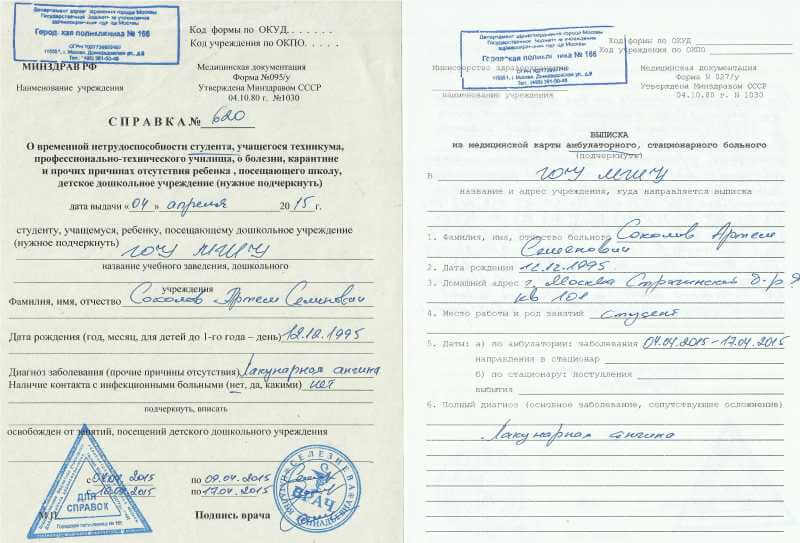 Департамент здравоохранения города Москвы
Государственное бюджетное учреждение
здравоохранения города Москвы
Городская поликлиника № 166
Код формы по ОКУД. . . . . .
Код учреждения по ОКПО. . . . .
МИНЗДРАВ РФ
Наименование учреждения
Медицинская документация
Форма №095/у
Утверждена Минздравом СССР
04.10.80 г. №1030
СПРАВКА № 620
О временной нетрудоспособности студента, учащегося техникума,
профессионально-технического училища, о болезни, карантине
и прочих причинах отсутствия ребенка , посещающего школу,
детское дошкольное учреждение (нужное подчеркнуть)
дата выдачи «04 » апреля 20 15 г.
студенту, учащемуся, ребенку, посещающему дошкольное учреждение
(нужное подчеркнуть) ГОУ МГИУ
название учебного заведения, дошкольного
учреждения
Фамилия, имя, отчество Соколов Артем Семенович
Дата рождения (год, месяц, для детей до 1-го года – день) 12.12.1995
Диагноз заболевания (прочие причины отсутствия) Лакунарная ангина
Наличие контакта с инфекционными больными (нет, да, какими) нет
подчеркнуть, вписать
освобожден от занятий, посещений детского дошкольного учреждения
с 04.04.2015 по 09.04.2015
по 17.04.2015
ДЛЯ
СПРАВОК
Городская поликлиника № 166
СЕЛЕЗНЕВА
ВРАЧ
М.П.
Подпись врача
Департамент здравоохранения города Москвы
Государственное бюджетное учреждение
здравоохранения города Москвы
Городская поликлиника № 166
Код формы по ОКУД
Код учреждения по ОКПО
Министерство здравоохранения
наименование учреждения
Медицинская документация
Форма N 027/у
Утверждена Минздравом СССР
04.10.80 г. N 1030
ВЫПИСКА
из медицинской карты амбулаторного, стационарного больного
(подчеркнуть)
В ГОУ МГИУ
название и адрес учреждения, куда направляется выписка
1. Фамилия, имя, отчество больного Соколов Артем
Семенович
2. Дата рождения 12.12.1995
3. Домашний адрес г. Москва
кв 101
4. Место работы и род занятий студент
5. Даты: а) по амбулатории: заболевания 04.04.2015-17.04.2015
направления в стационар
б) по стационару: поступления
выбытия
6. Полный диагноз (основное заболевание, сопутствующие осложнения)
Лакунарная ангина